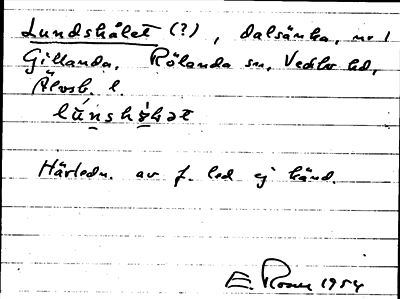 Lundshålet (?), dalsänka, nv l
Gillanda, Rölanda sn, Vedbo hd,
Älvsb. l.
lúnshɔ̀lət
Härledn. av f. led ej känd.
E. Rosen 1954